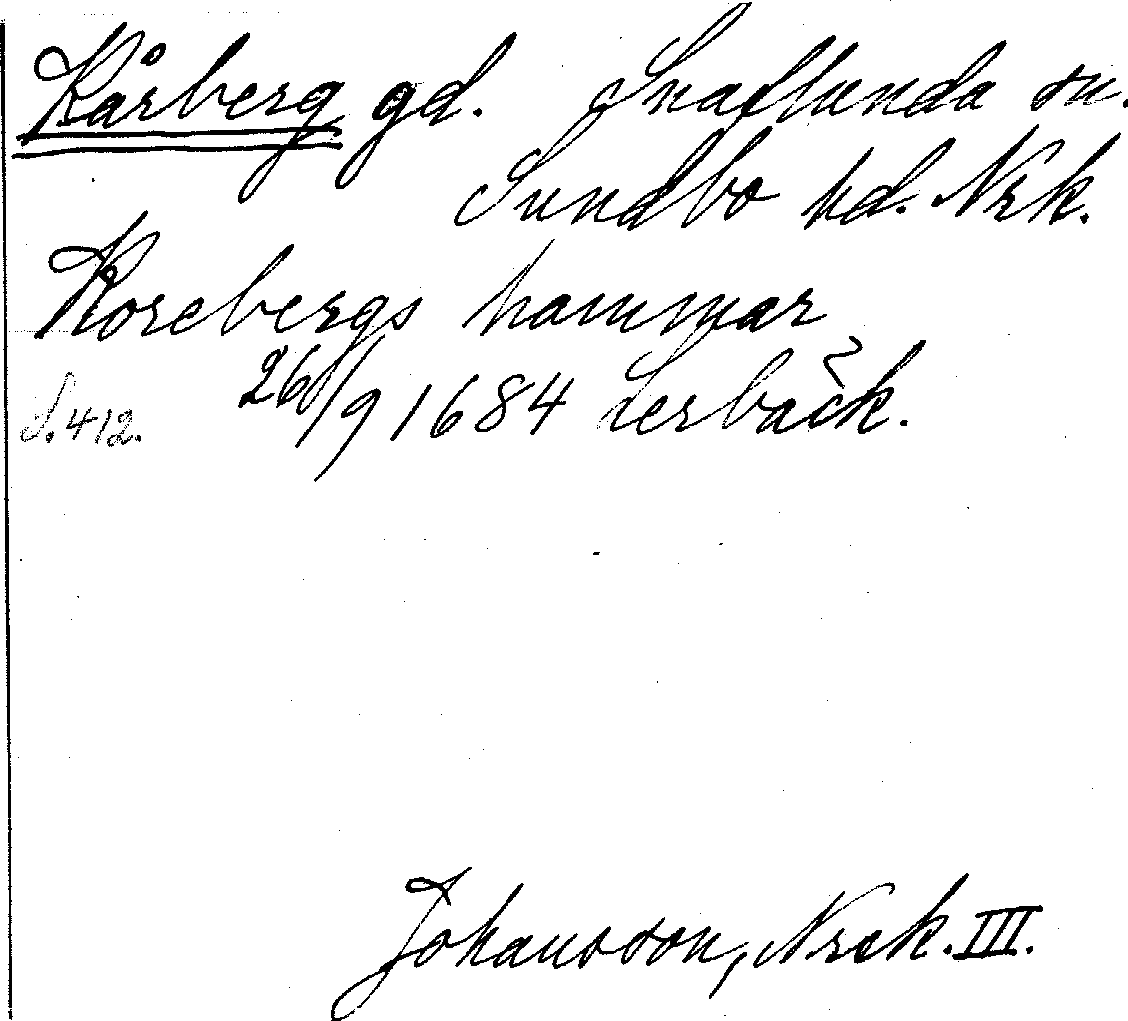 Kårberg gd. Snaflunda sn.
Sundbo hd. Nrk.
Korebergs hammar
26/9 1684 Lerbäck.
S. 412.
Johansson, Nrck. III.